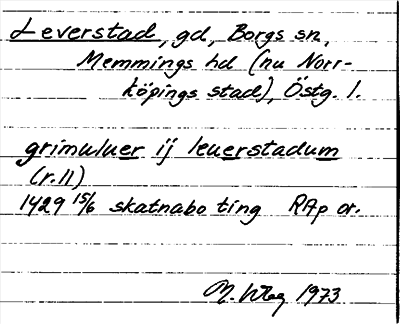 Leverstad, gd, Borgs sn,
Memmings hd (nu Norr-
köpings stad), Östg. l.
grimuluer ij leuerstadum
(r. 11)
1429 15/6 skatnabo ting RAp or.
M. 1973